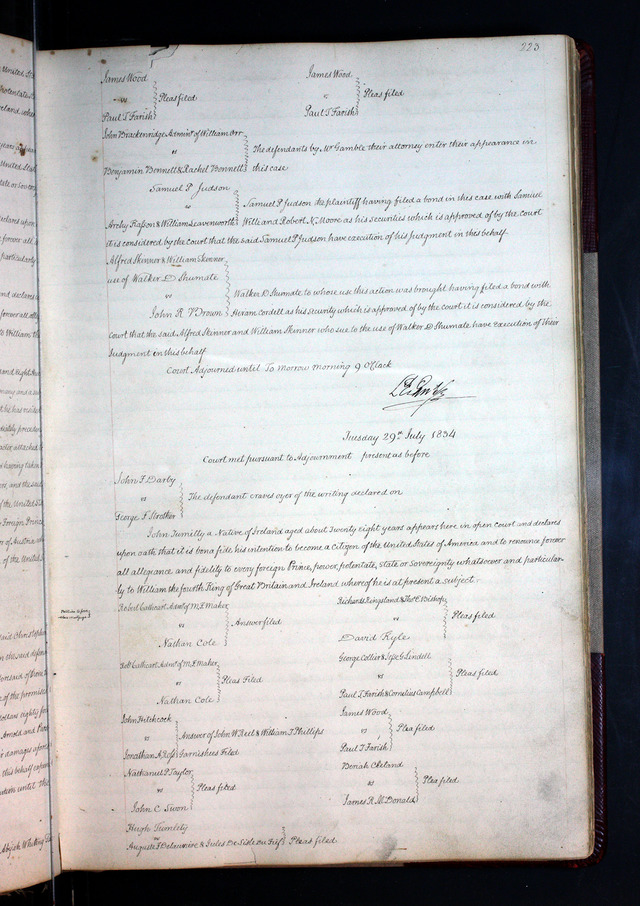 223
James Wood
vs
Paul T Farish
Pleas filed
James Wood
vs
Paul T Farish
Pleas filed
John Brackenridge Admint of William Orr
vs
Benjamin Bennett & Rachel Bennett
The defendants by Mr Gamble their attorney enter their appearance in
this case
Samuel P Judson
vs
Archy Kasson & William Leavenworth
Samuel P Judson the plaintiff having filed a bond in this case with Samuel
Willi and Robert N. Moore as his securities which is approved of by the court
it is considered by the Court that the said Samuel P Judson have execution of his judgment in this behalf
Alfred Skinner & William Skinner
use of Walker D Shumate
vs
John R V Brown
Walker D Shumate to whose use this action was brought having filed a bond with
Hiram Cordell as his security which is approved of by the court it is considered by the
Court that the said Alfred Skinner and William Skinner who sue to the use of Walker D Shumate have Execution of their
Judgment in this behalf
Court Adjourned until To Morrow morning 9 OClock
Tuesday 29th July 1834
Court met pursuant to Adjournment present as before
John F Darby
vs
George F Strother
The defendant craves oyer of the writing declared on
John Tumilly a Native of Ireland aged about Twenty eight years appears here in open Court and declares
upon oath that it is bona fide his intention to become a Citizen of the United States of America and to renounce forever
all allegiance and fidelity to every foreign Prince, power, potentate, state or Sovereignty whatsoever and particular-
ly to William the fourth King of Great Britain and Ireland whereof he is at present a subject.
Robert Cathcart Admt of M L Maker
vs
Nathan Cole
Answer filed
Richards Kingsland & Thos E Bishop
vs
David Kyle
Pleas filed
Robt Cathcart Admt of M L Maker
vs
Nathan Cole
Pleas Filed
George Collier & Jesse G Lindell
vs
Paul T Farish & Cornelius Campbell
Pleas filed
John Hitchcock
vs
Jonathan A Ross
Answer of John W Reel & William T Phillips
Garnishees Filed
James Wood
vs
Paul T Farish
Plea filed
Nathaniel P Taylor
vs
John C Swon
Pleas filed
Beriah Cleland
vs
James R McDonald
Plea filed
Hugh Tumilty
vs
Auguste F Delauriere & Jules De Sisle Du Fief
Pleas filed